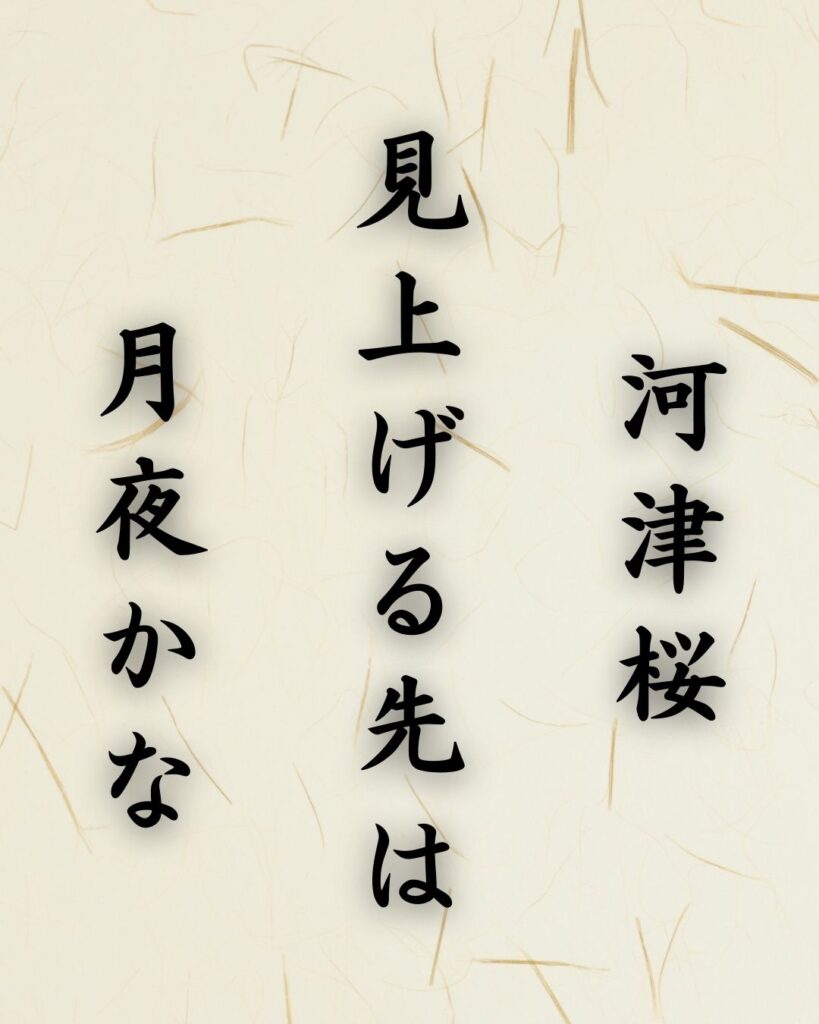 河津桜
見上げる先は
月夜かな